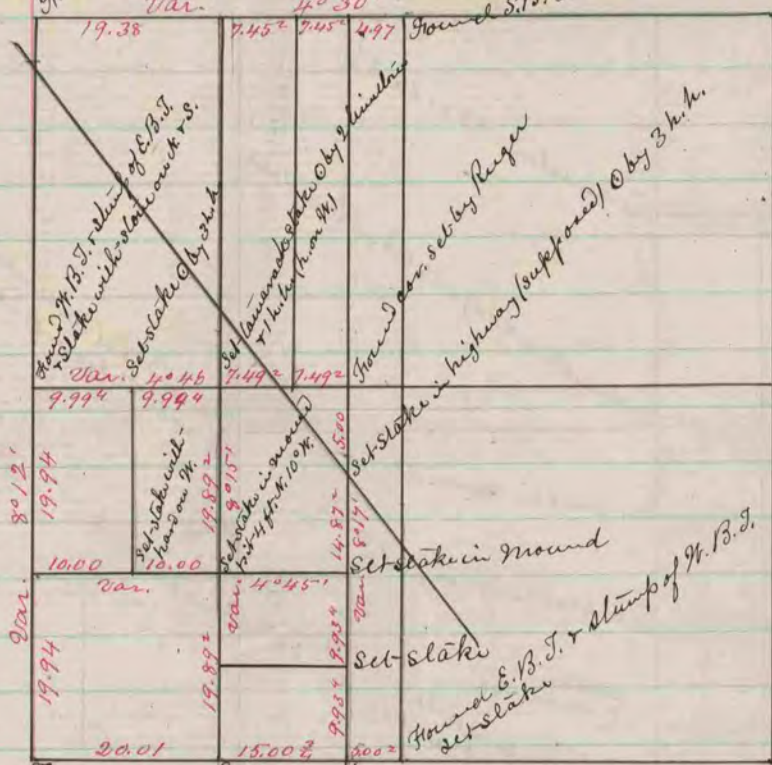 Var. 4°30'
19.38 7.45² 7.45² 4.97
Found S.B.
Found W.B.T. & stump of E.B.T.
& stake with stone on N. & S.
Set stake by 3 h.h.
Set tamarack stake by 2
& 1 h. on W.
Found cor. set by Ruger
Set stake in highway (supposed) by 3 h.h.
Var. 4°46 7.49² 7.49²
9.99⁴ 9.99⁴
Var. 8°12'
19.94
Set stake with
hard on W.
19.89²
8°15'
Set stake in mound
pit 4 ft. N. 10° W.
5.00
14.87²
Var. 8°17'
10.00 10.00
Set stake in mound
Var. 4°45'
Var.
19.94
19.89²
9.93⁴
Set stake
9.93⁴
Found E.B.T. & stump of W.B.T.
set stake
20.01 15.00² 5.00²